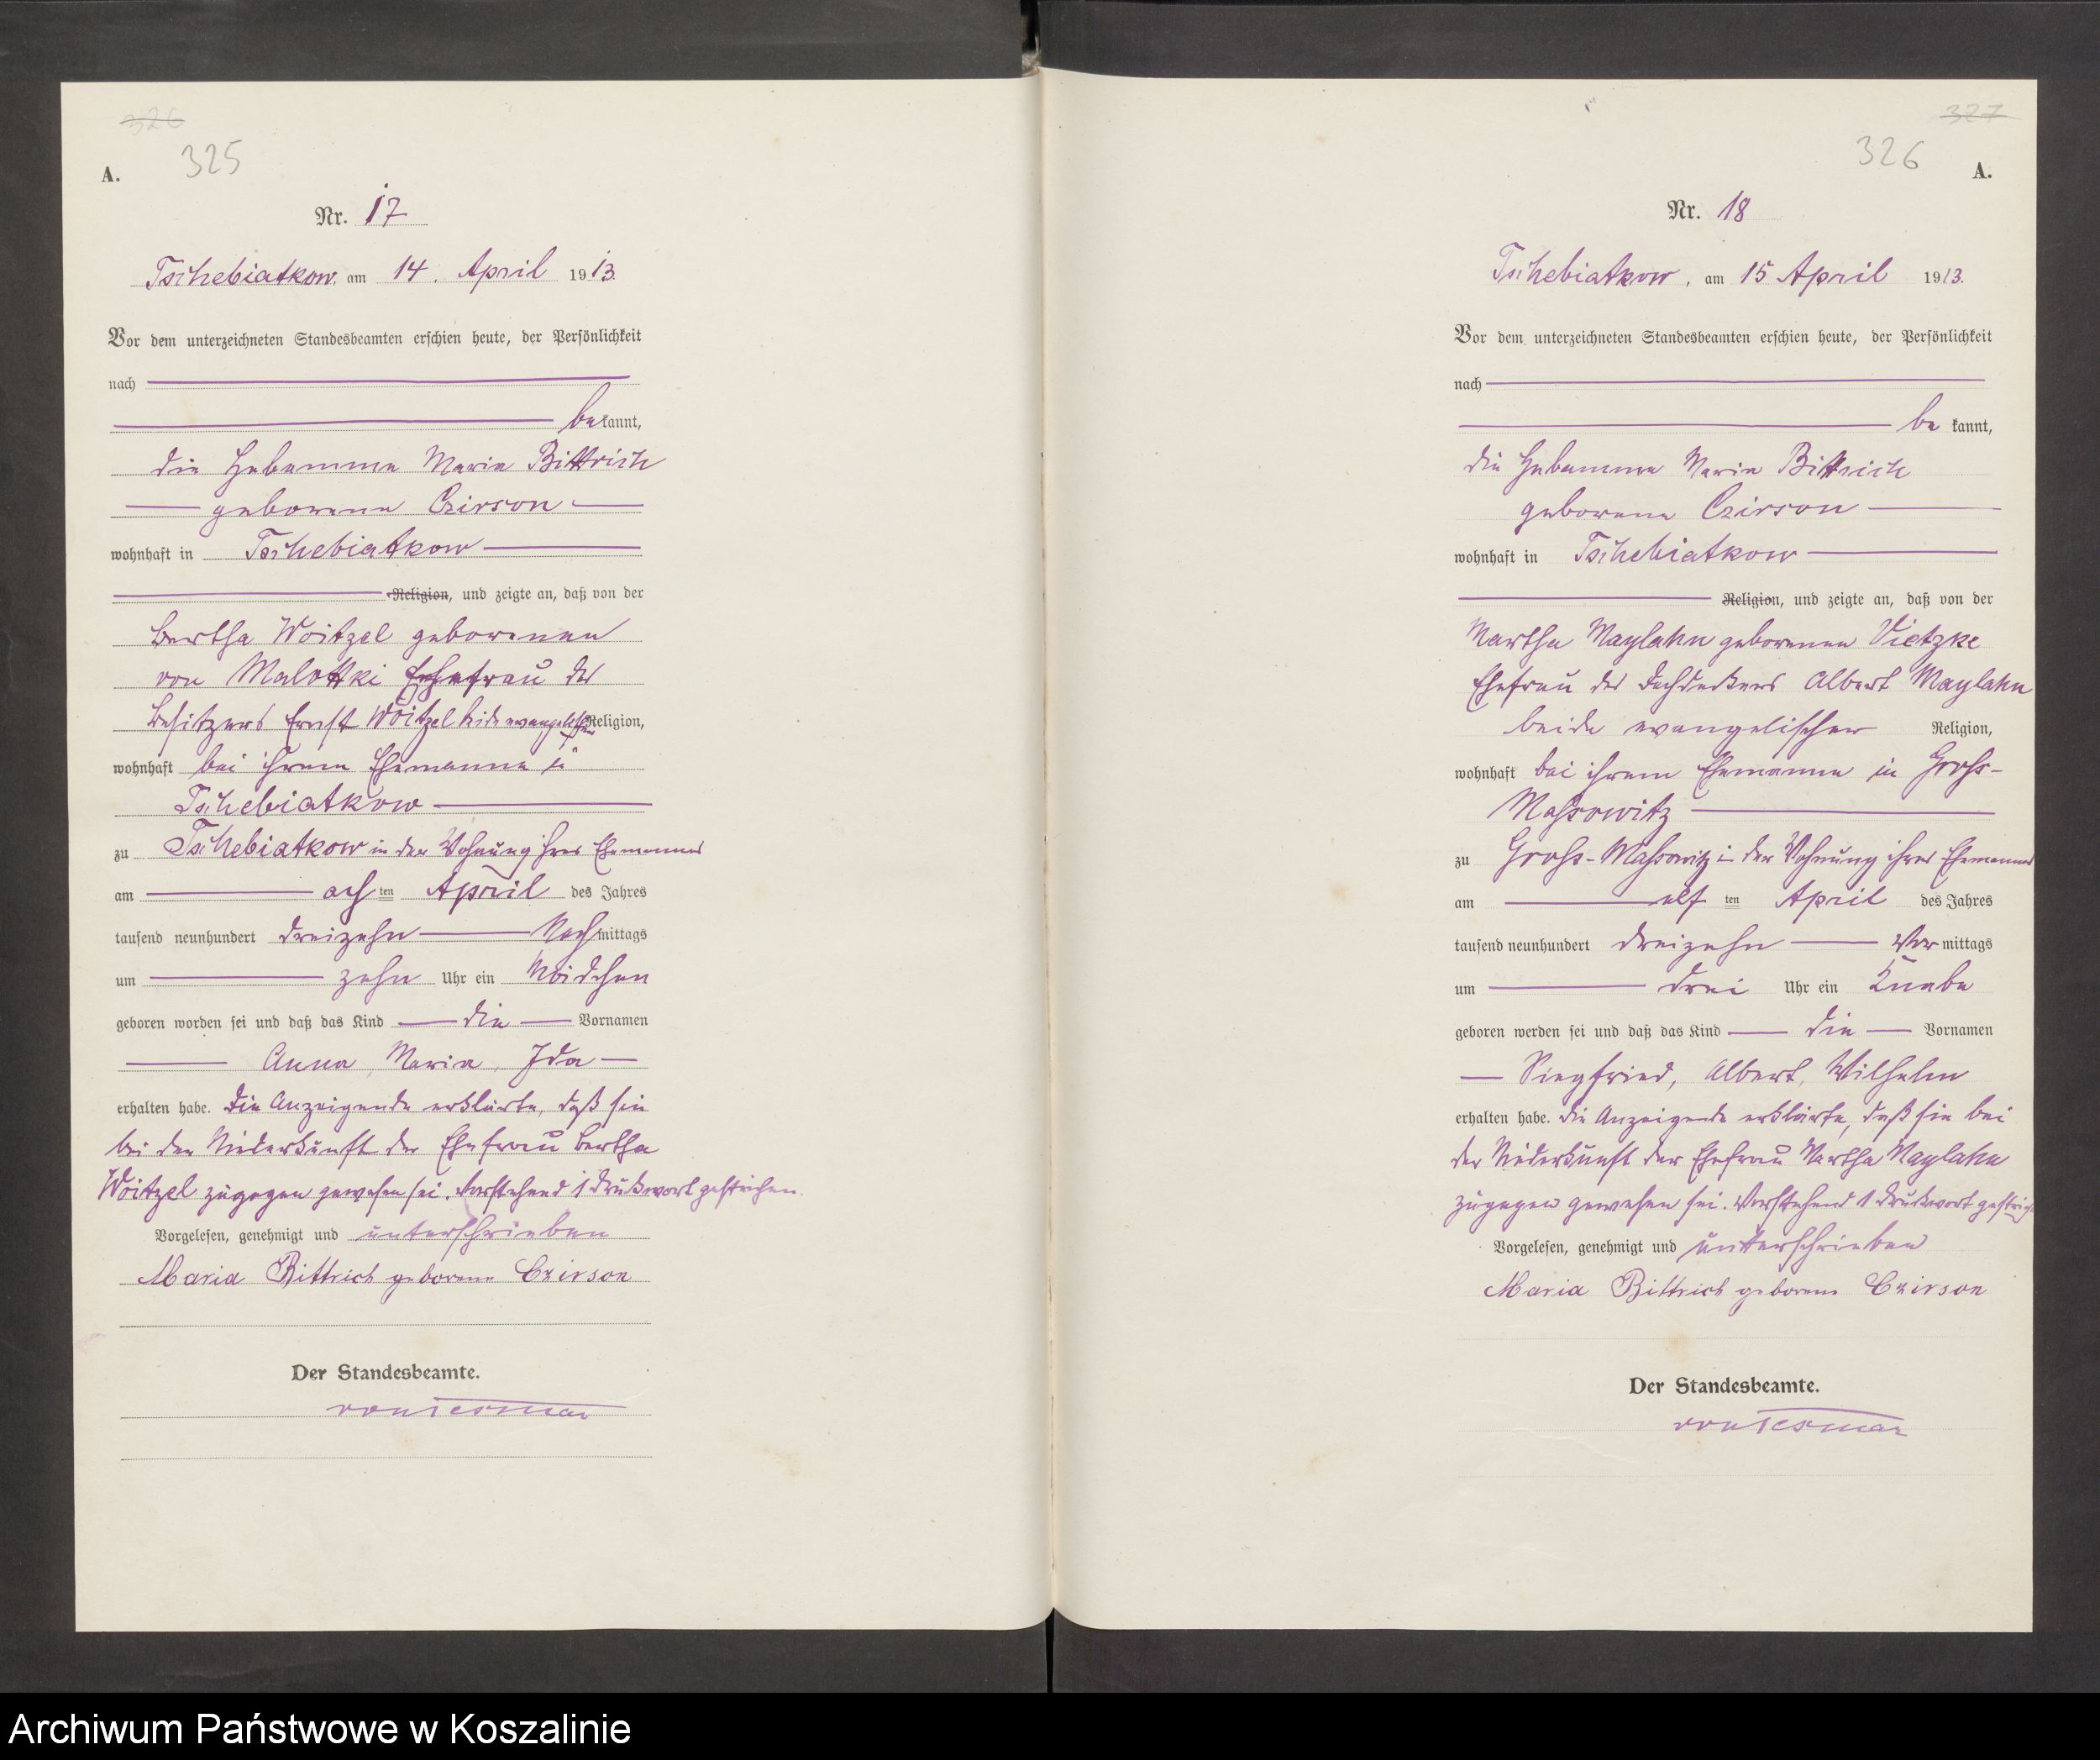 326
325
A.
Nr. 17
Tschebiatkow, am 14. April 1913.
Vor dem unterzeichneten Standesbeamten erschien heute, der Persönlichkeit
nach
bekannt,
die Hebamme Maria Bittrich
geborene Czirson
wohnhaft in Tschebiatkow
Religion, und zeigte an, daß von der
Bertha Woitzel geborenen
von Malottki Ehefrau des
Besitzers Ernst Woitzel beide evangelischer Religion,
wohnhaft bei ihrem Ehemanne in
Tschebiatkow
zu Tschebiatkow in der Wohnung ihres Ehemannes
am achten April des Jahres
tausend neunhundert dreizehn Nachmittags
um zehn Uhr ein Mädchen
geboren worden sei und daß das Kind die Vornamen
Anna, Maria, Ida
erhalten habe. Die Anzeigende erklärte, daß sie
bei der Niederkunft der Ehefrau Bertha
Woitzel zugegen gewesen sei. Vorstehend 1 Druckwort gestrichen.
Vorgelesen, genehmigt und unterschrieben
Maria Bittrich geborene Czirson
Der Standesbeamte.
von Tesmar
327
326
A.
Nr. 18
Tschebiatkow, am 15 April 1913.
Vor dem unterzeichneten Standesbeamten erschien heute, der Persönlichkeit
nach
be kannt,
die Hebamme Maria Bittrich
geborene Czirson
wohnhaft in Tschebiatkow
Religion, und zeigte an, daß von der
Martha Maylahn geborenen Vietzke
Ehefrau des Dachdeckers Albert Maylahn
beide evangelischer Religion,
wohnhaft bei ihrem Ehemanne in Gross-
Massowitz
zu Gross-Massowitz in der Wohnung ihres Ehemannes
am elf ten April des Jahres
tausend neunhundert dreizehn Vor mittags
um drei Uhr ein Knabe
geboren werden sei und daß das Kind die Vornamen
Siegfried, Albert, Wilhelm
erhalten habe. Die Anzeigende erklärte, daß sie bei
der Niederkunft der Ehefrau Martha Maylahn
zugegen gewesen sei. Vorstehend 1 Druckwort
Vorgelesen, genehmigt und unterschrieben
Maria Bittrich geborene Czirson
Der Standesbeamte.
von Tesmar
Archiwum Państwowe w Koszalinie